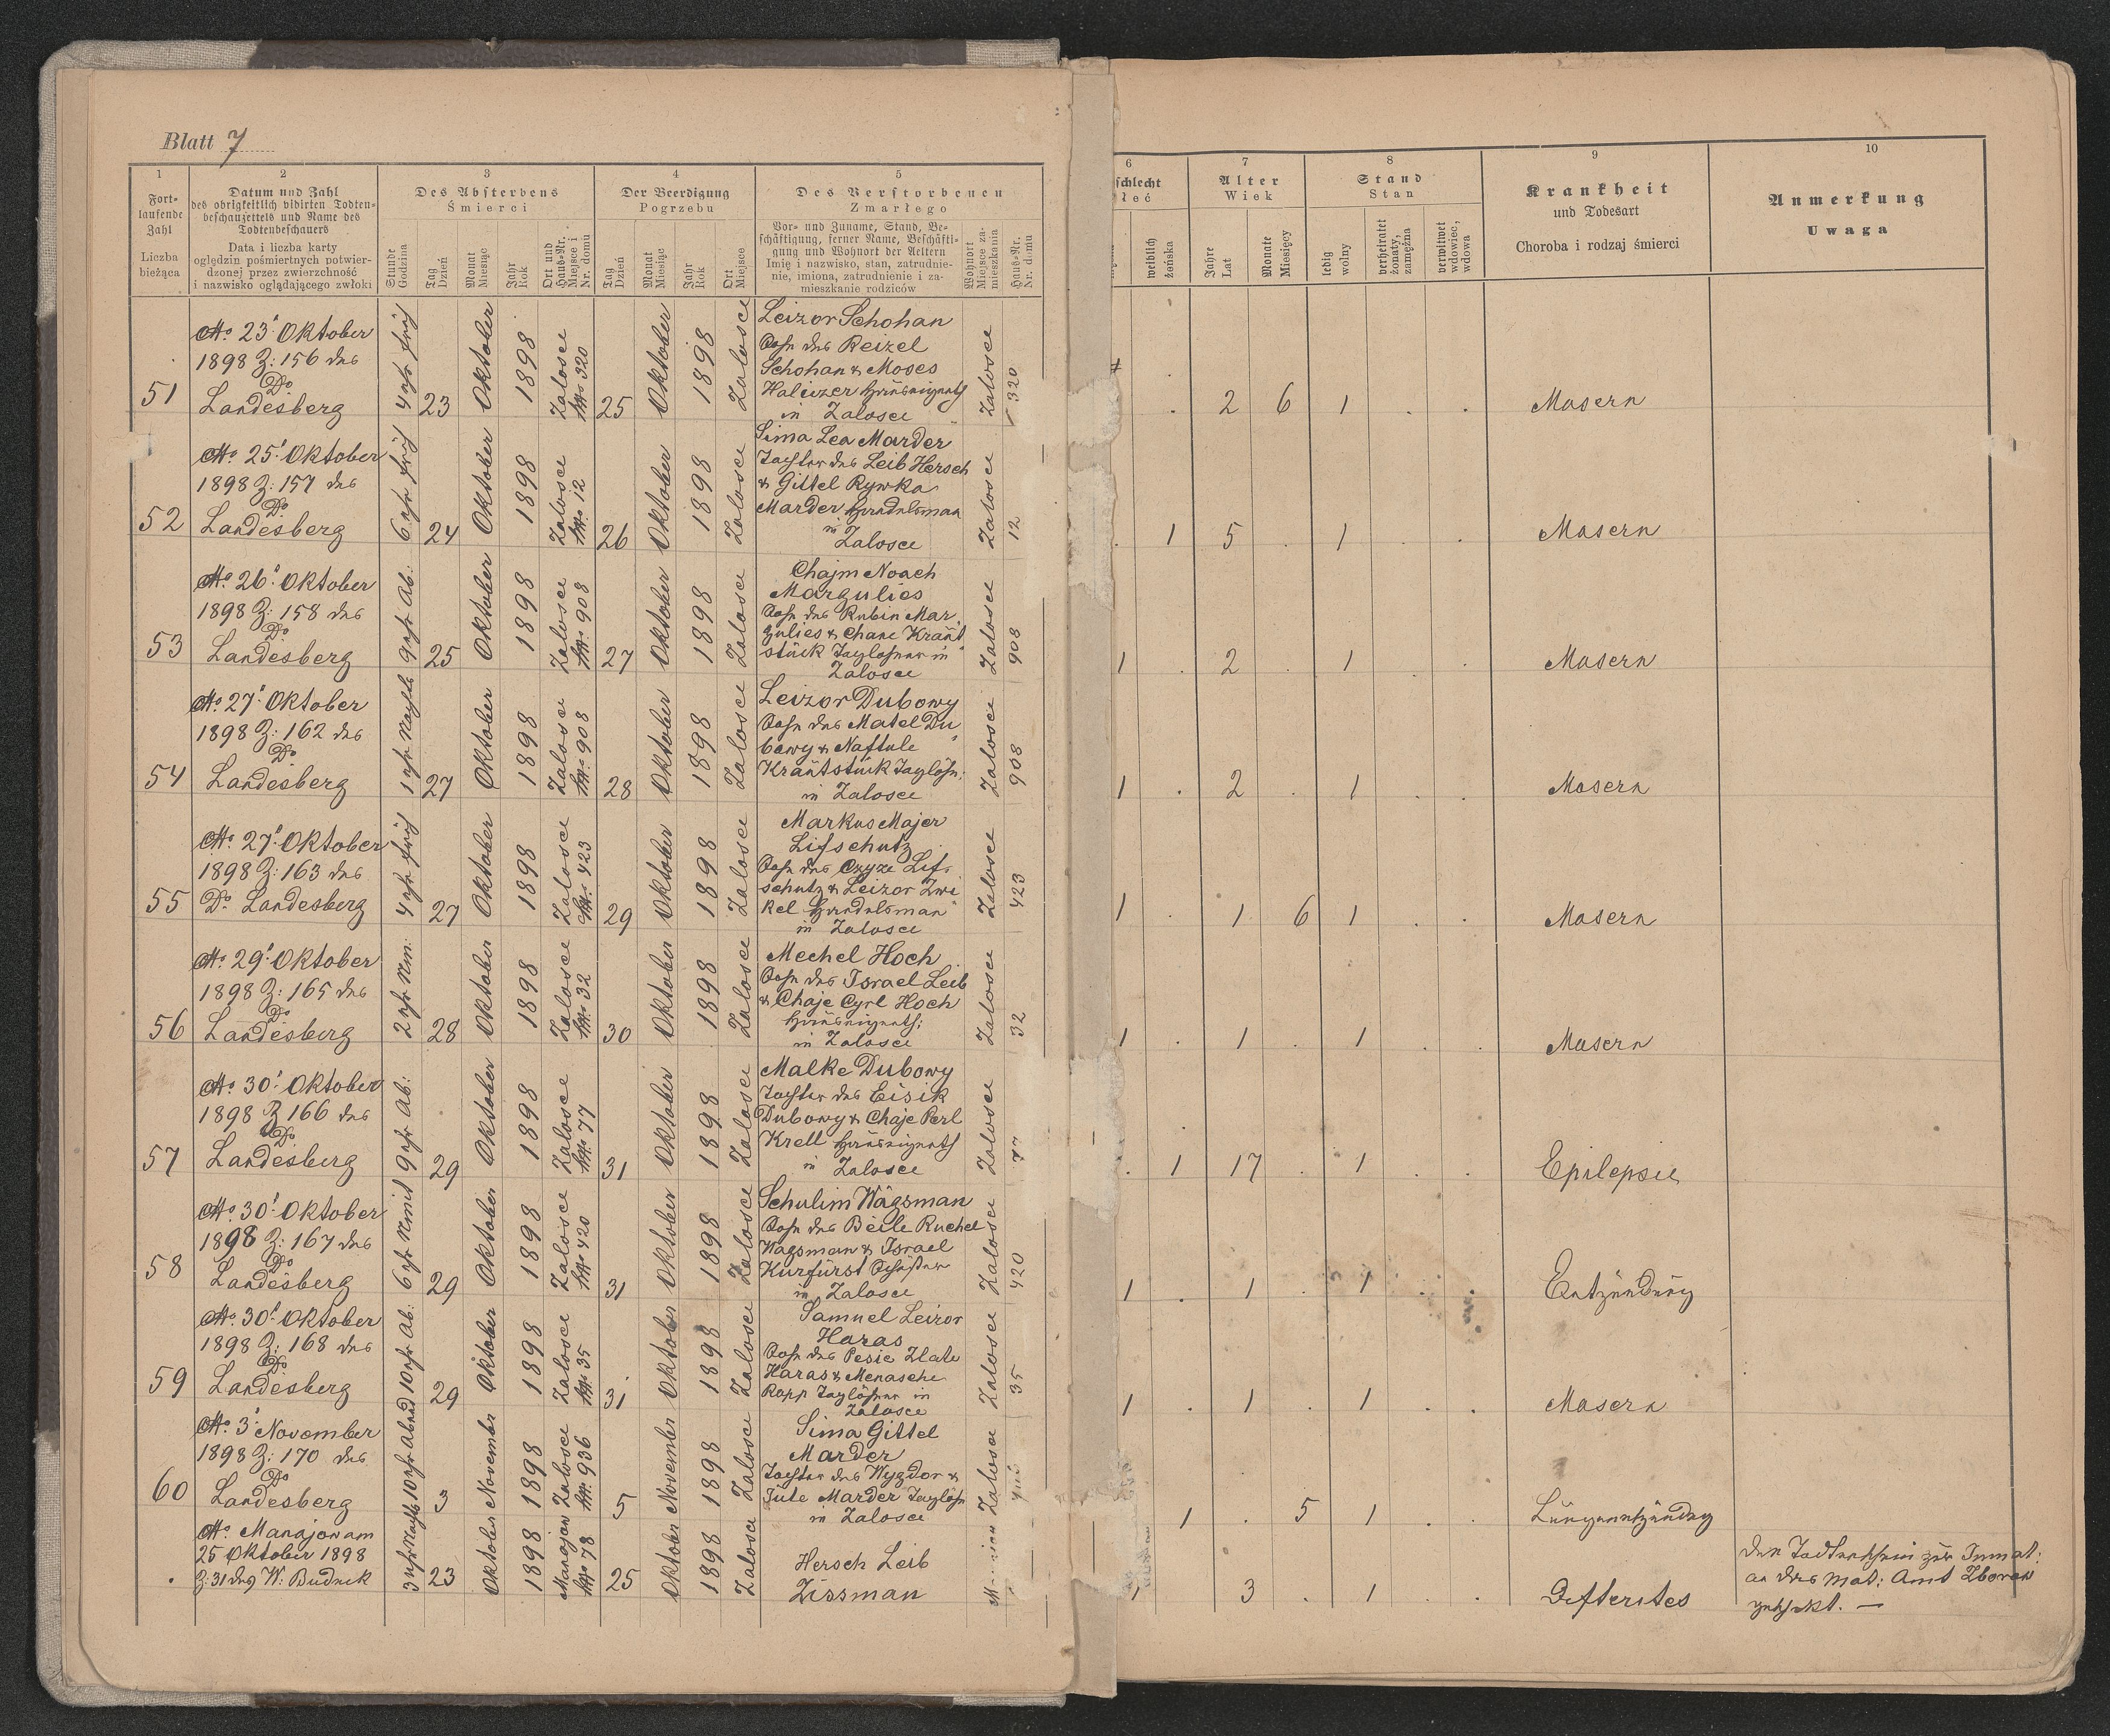 Blatt 7
1
2
3
4
5
6
7
8
9
10
Fort-
laufende
Zahl
Liczba
bieżąca
Datum und Zahl
des obrigkeitlich vidirten Todten-
beschauzettels und Name des
Todtenbeschauers
Data i liczba karty
oględzin pośmiertnych potwier-
dzonej przez zwierzchność
i nazwisko oglądającego zwłoki
Des Absterbens
Śmierci
Stunde
Godzina
Tag
Dzień
Monat
Miesiąc
Jahr
Rok
Ort und
Haus-Nr.
Miejsce i
Nr. domu
Der Beerdigung
Pogrzebu
Tag
Dzień
Monat
Miesiąc
Jahr
Rok
Ort
Miejsce
Des Verstorbenen
Zmarłego
Vor- und Zuname, Stand, Be-
schäftigung, ferner Name, Beschäfti-
gung und Wohnort der Aeltern
Imię i nazwisko, stan, zatrudnie-
nie, imiona, zatrudnienie i za-
mieszkanie rodziców
Wohnort
Miejsce za-
mieszkania
Haus-Nr.
Nr. domu
schlecht
łeć
weiblich
żeńska
Alter
Wiek
Jahre
Lat
Monate
Miesięcy
Stand
Stan
ledig
wolny
verheiratet
żonaty,
zamężna
verwittwet
wdowiec,
wdowa
Krankheit
und Todesart
Choroba i rodzaj śmierci
Anmerkung
Uwaga
51
No 23t Oktober
1898 Z: 156 des
Dr
Landesberg
4 uhr früh
23
Oktober
1898
Zalosce
No 320
25
Oktober
1898
Zalosce
Leizor Schohan
Sohn des Beizel
Schohan & Moses
Halizer Hauseigenth
in Zalosce
Zalosce
320
2
6
1
Masern
52
No 25t Oktober
1898 Z: 157 des
Dr
Landesberg
6 uhr früh
24
Oktober
1898
Zalosce
No 12
26
Oktober
1898
Zalosce
Sima Lea Marder
Tochter des Leib Hersch
& Gittel Rywka
Marder Handelsman
in
Zalosce
Zalosce
12
1
5
1
Masern
53
No 26t Oktober
1898 Z: 158 des
Dr
Landesberg
9 uhr Ab:
25
Oktober
1898
Zalosce
No 908
27
Oktober
1898
Zalosce
Chajm Noach
Margulies
Sohn des Rubin Mar
gulies & Chane Kraut
stück Taglohner in
Zalosce
Zalosce
908
1
2
1
Masern
54
No 27t Oktober
1898 Z: 162 des
Dr
Landesberg
1 uhr Nachts
27
Oktober
1898
Zalosce
No 908
28
Oktober
1898
Zalosce
Leizor Dubowy
Sohn des Matel Du
bowy & Naftule
Krautstück Taglöhn:
in Zalosce
Zalosce
908
1
2
1
Masern
55
No 27t Oktober
1898 Z: 163 des
Dr Landesberg
4 uhr früh
27
Oktober
1898
Zalosce
No 423
29
Oktober
1898
Zalosce
Markus Majer
Lifschutz
Sohn des Czyze Lif
schutz & Leizor Zwi
kel Handelsman
in Zalosce
Zalosce
423
1
1
6
1
Masern
56
No 29t Oktober
1898 Z: 165 des
Dr
Landesberg
2 uhr Nm:
28
Oktober
1898
Zalosce
No 32
30
Oktober
1898
Zalosce
Mechel Hoch
Sohn des Israel Leib
& Chaje Cyrl Hoch
Hauseigenth:
in Zalosce
Zalosce
32
1
1
1
Masern
57
No 30t Oktober
1898 Z 166 des
Dr
Landesberg
9 uhr Ab:
29
Oktober
1898
Zalosce
No 77
31
Oktober
1898
Zalosce
Malke Dubowy
Tochter des Eisik
Dubowy & Chaje Perl
Krell Hauseigenth
in Zalosce
Zalosce
77
1
17
1
Epilepsie
58
No 30t Oktober
1898 Z: 167 des
Dr
Landesberg
6 uhr
29
Oktober
1898
Zalosce
No 420
31
Oktober
1898
Zalosce
Schulim Wagsman
Sohn des Beile Ruchel
Wagsman & Israel
Kurfürst Schuster
in Zalosce
Zalosce
420
1
1
1
Entzündung
59
No 30t Oktober
1898 Z: 168 des
Dr
Landesberg
10 uhr Ab:
29
Oktober
1898
Zalosce
No 35
31
Oktober
1898
Zalosce
Samuel Leizor
Haras
Sohn des Pesie Zlate
Haras & Menasche
Rapp Taglöhner in
Zalosce
Zalosce
35
1
1
1
Masern
60
No 3t November
1898 Z: 170 des
Dr
Landesberg
10 uhr Abend
3
November
1898
Zalosce
No 936
5
November
1898
Zalosce
Sima Gittel
Marder
Tochter des Wygdor &
Jute Marder Taglöhn
in Zalosce
Zalosce
1
5
1
Lungenentzündung
No Manajow am
25 Oktober 1898
Z: 31 des W: Budnik
3 uhr Nachts
23
Oktober
1898
Manajow
No 78
25
Oktober
1898
Zalosce
Hersch Leib
Zissman
1
3
1
Difterites
Den Todtenschein zur Immat:
an das Mat: Amt Zborow
geschickt. —